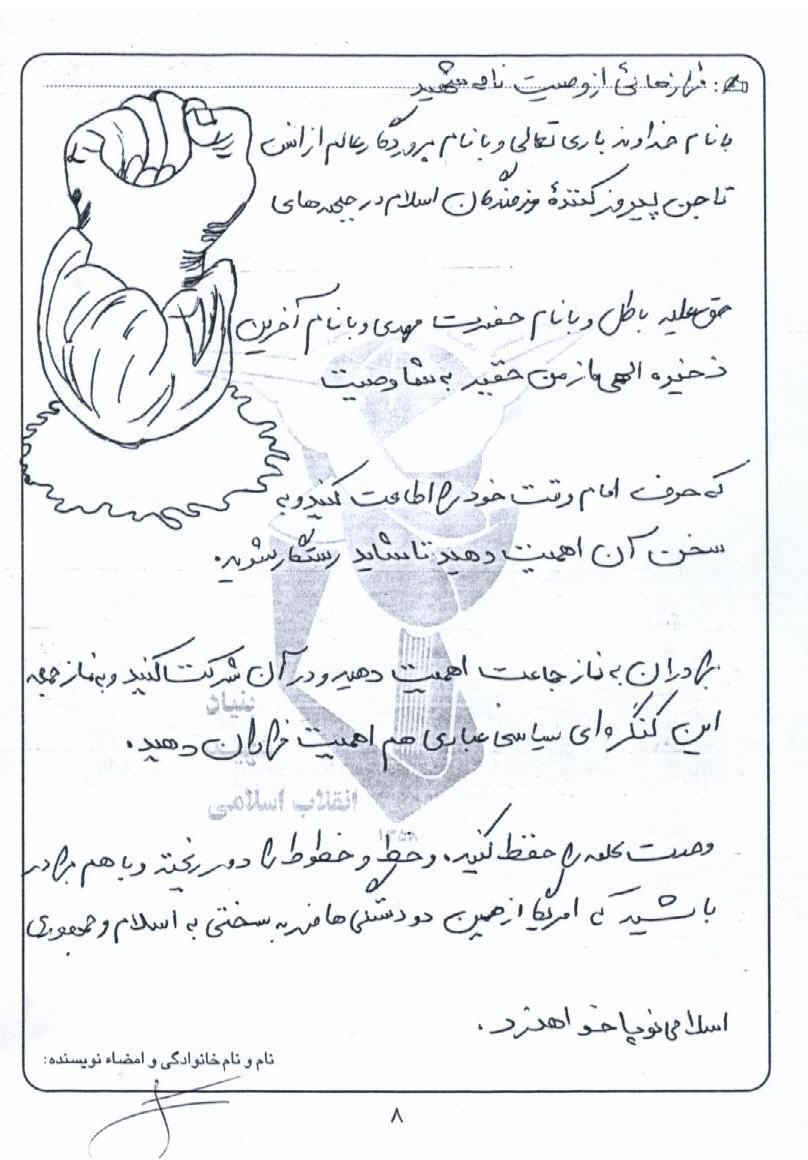 فرازهائی از وصیت نامه شهید
بنام خداوند باری تعالی و بانام پروردگار عالم از انس
تا جن پیروز کنندهٔ رزمندگان اسلام در جبهه‌های
حق علیه باطل و بانام حضرت مهدی و بانام آخرین
ذخیره الهی از من حقیر به شما وصیت
که حرف امام وقت خود را اطاعت کنید و به
سخن آن اهمیت دهید تا شاید رستگار شوید.
برادران به نماز جماعت اهمیت دهید و در آن شرکت کنید و به نماز جمعه
این کنگره‌ای سیاسی عبادی هم اهمیت فراوان دهید.
بنیاد
انقلاب اسلامی
۱۳۵۸
وحدت کلمه را حفظ کنید، و خط و خطوط را دور ریخته و باهم برادر
باشید که امریکا از همین دودستگی‌ها ضربه سختی به اسلام و جمهوری
اسلامی نوپا خواهد زد.
نام و نام خانوادگی و امضاء نویسنده:
۸